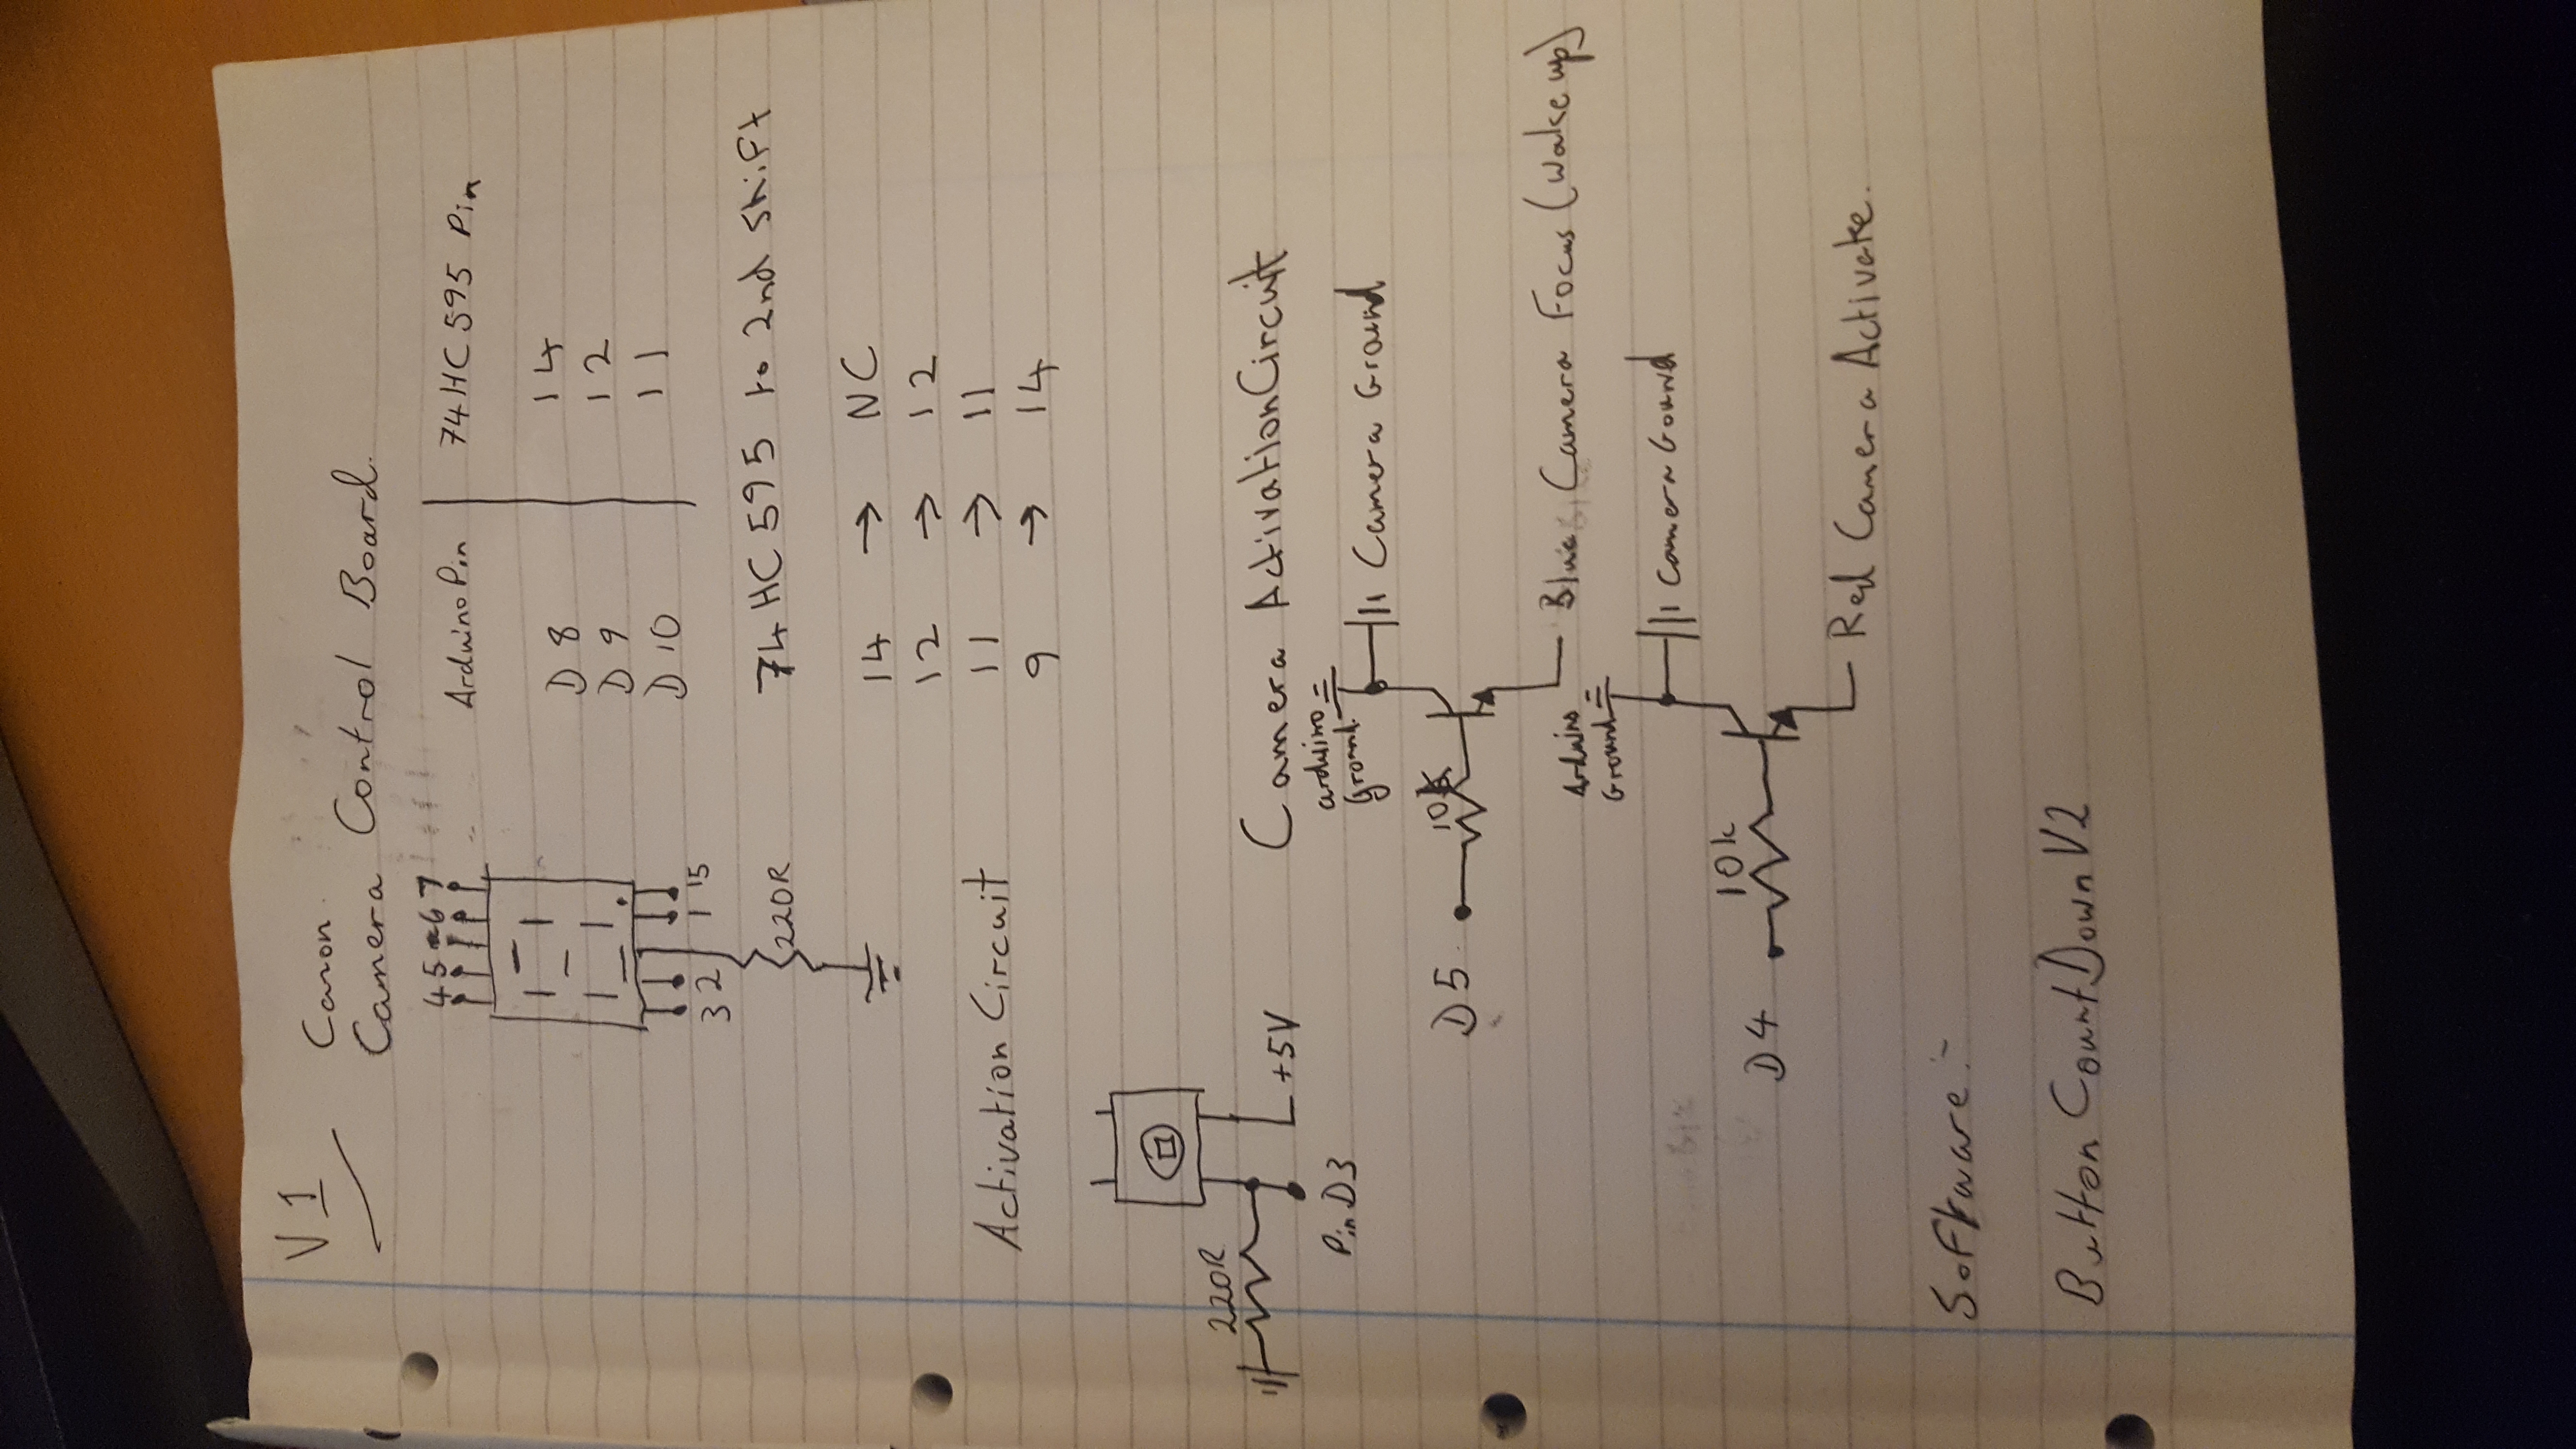 V1
Canon
Camera Control Board.
4 5 6 7
3 2 1 15
220R
Arduino Pin 74HC595 Pin
D8 14
D9 12
D10 11
74HC595 to 2nd Shift
14 → NC
12 → 12
11 → 11
9 → 14
Activation Circuit
220R
+5V
Pin D3
Camera Activation Circuit
arduino
Ground.
Camera Ground
D5
10k
Blue Camera Focus (wake up)
Arduino
Ground
Camera Gound
10k
D4
Red Camera Activate.
Software:-
Button CountDown V2